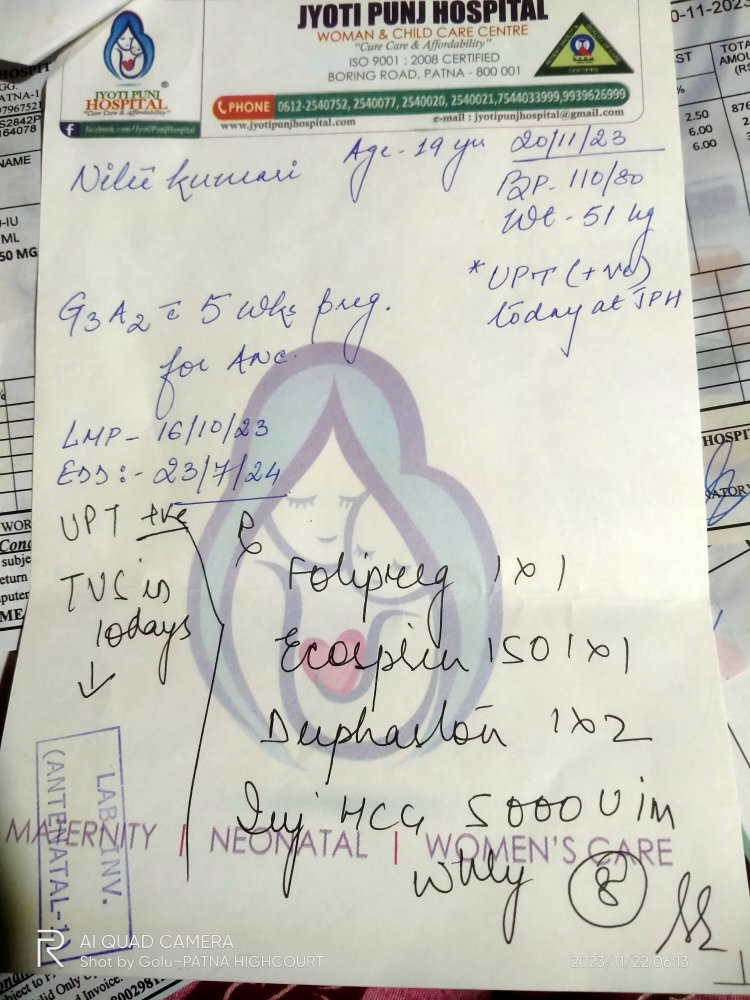 JYOTI PUNJ HOSPITAL
WOMAN & CHILD CARE CENTRE
"Cure Care & Affordability"
ISO 9001 : 2008 CERTIFIED
BORING ROAD, PATNA - 800 001
JYOTI PUNJ
HOSPITAL
"Cure Care & Affordability"
facebook.com/JyotiPunjHospital
PHONE 0612-2540752, 2540077, 2540020, 2540021,7544033999,9939626999
www.jyotipunjhospital.com e-mail : jyotipunjhospital@gmail.com
Nilu Kumari Age - 19 yrs 20/11/23
BP - 110/80
Wt - 51 kg
* UPT (+ve)
today at JPH
G3A2 c̄ 5 wks preg.
for ANC.
LMP - 16/10/23
EDD :- 23/7/24
UPT +ve
TVS in
10days
↓
Rx
Folipreg 1x1
Ecosprin 150 1x1
Duphaston 1x2
Inj HCG 5000 U im
wkly 8
LAB. INV.
(ANTENATAL-1)
MATERNITY | NEONATAL | WOMEN'S CARE
AI QUAD CAMERA
Shot by Golu-PATNA HIGHCOURT
2023/11/22 06:13
0-11-2023
ST
TOTAL
2.50
6.00
6.00
NAME
ML
50 MG
HOSPI
ATORY